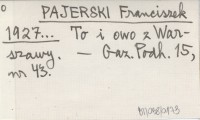 PAJERSKI Franciszek
1927... To i owo z War-
szawy. — Gaz. Podh. 15,
nr 43.